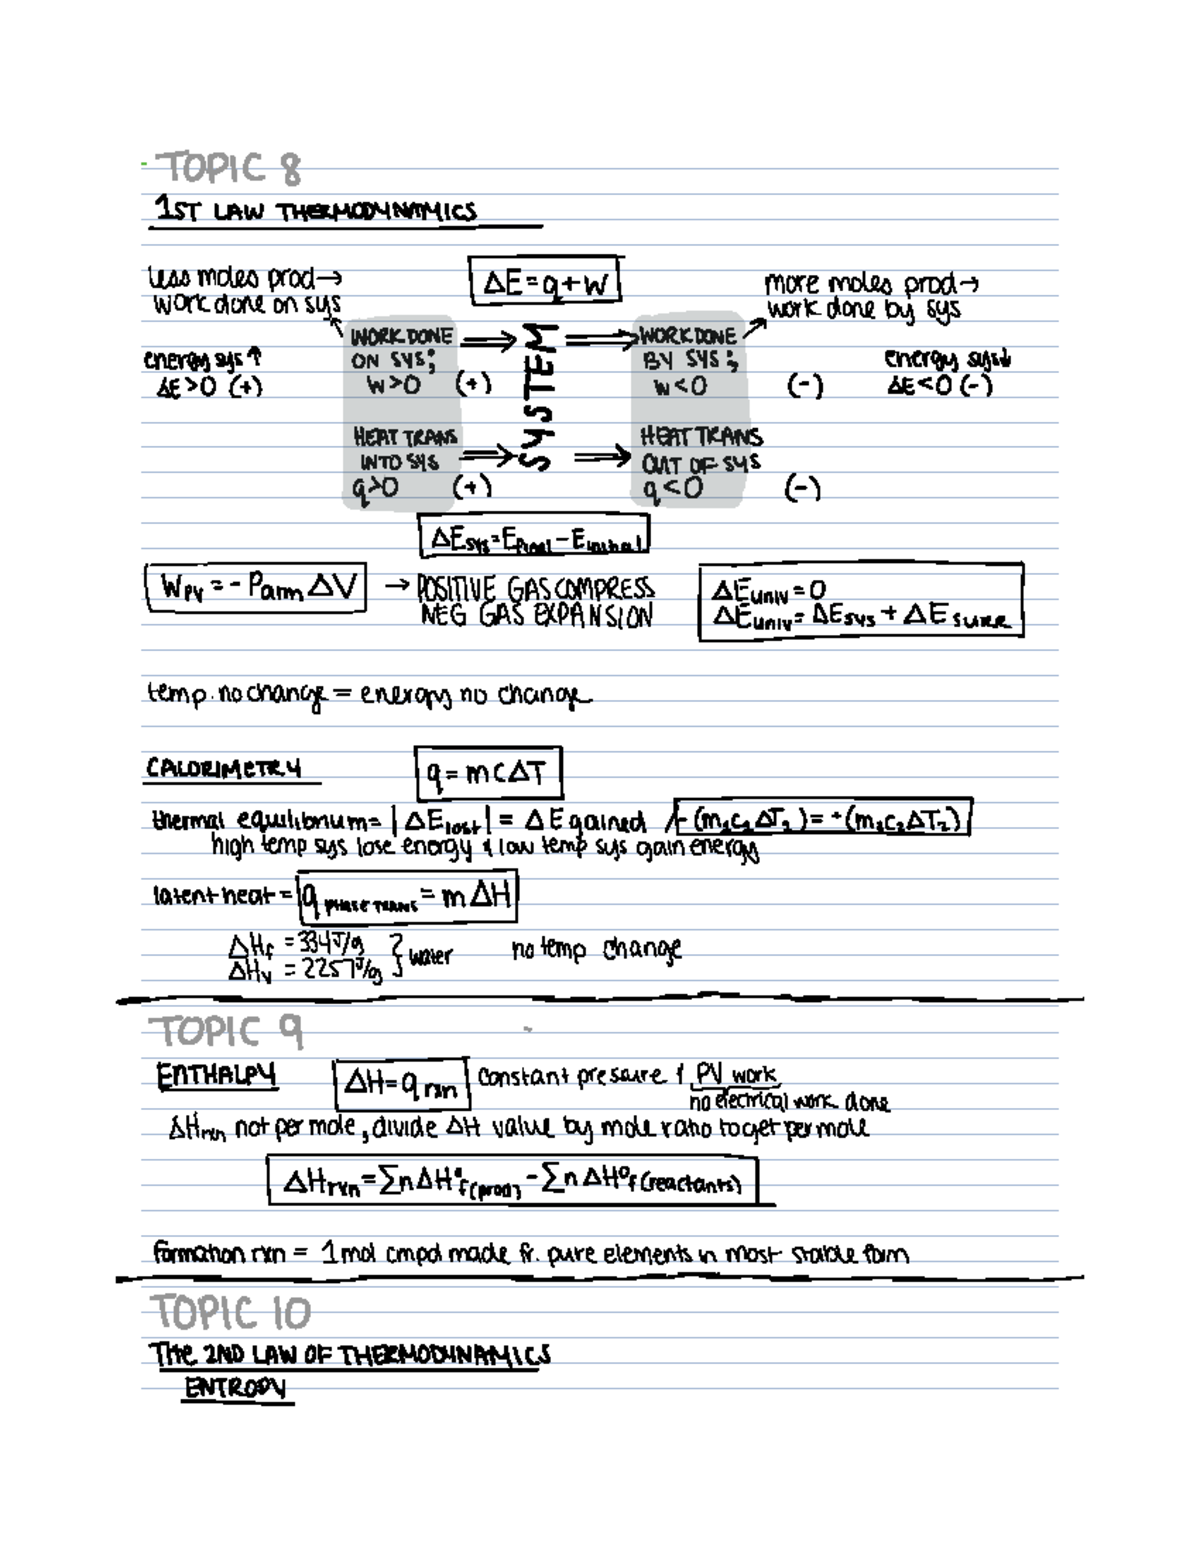 TOPIC 8
1ST LAW THERMODYNAMICS
less moles prod→
work done on sys
ΔE=q+w
more moles prod→
work done by sys
energy sys↑
ΔE>0 (+)
WORK DONE
ON SYS;
W>0 (+)
HEAT TRANS
INTO SYS
q>0 (+)
SYSTEM
WORK DONE
BY SYS;
W<0 (-)
HEAT TRANS
OUT OF SYS
q<0 (-)
energy sys↓
ΔE<0 (-)
ΔEsys=Efinal-Einitial
WPV=-PatmΔV → POSITIVE GAS COMPRESS
NEG GAS EXPANSION
ΔEuniv=0
ΔEuniv=ΔEsys+ΔEsurr
temp. no change = energy no change
CALORIMETRY q=mCΔT
thermal equilibrium=|ΔElost|=ΔE gained
high temp sys lose energy & low temp sys gain energy
latent heat= q PHASE TRANS = mΔH
ΔHf =334J/g } water no temp change
ΔHv =2257J/g
TOPIC 9
ENTHALPY ΔH=q rxn constant pressure & PV work
no electrical work done
ΔHrxn not per mole, divide ΔH value by mole ratio to get per mole
ΔHrxn=ΣnΔH°f(prod)-ΣnΔH°f(reactants)
formation rxn = 1 mol cmpd made fr. pure elements in most stable form
TOPIC 10
THE 2ND LAW OF THERMODYNAMICS
ENTROPY